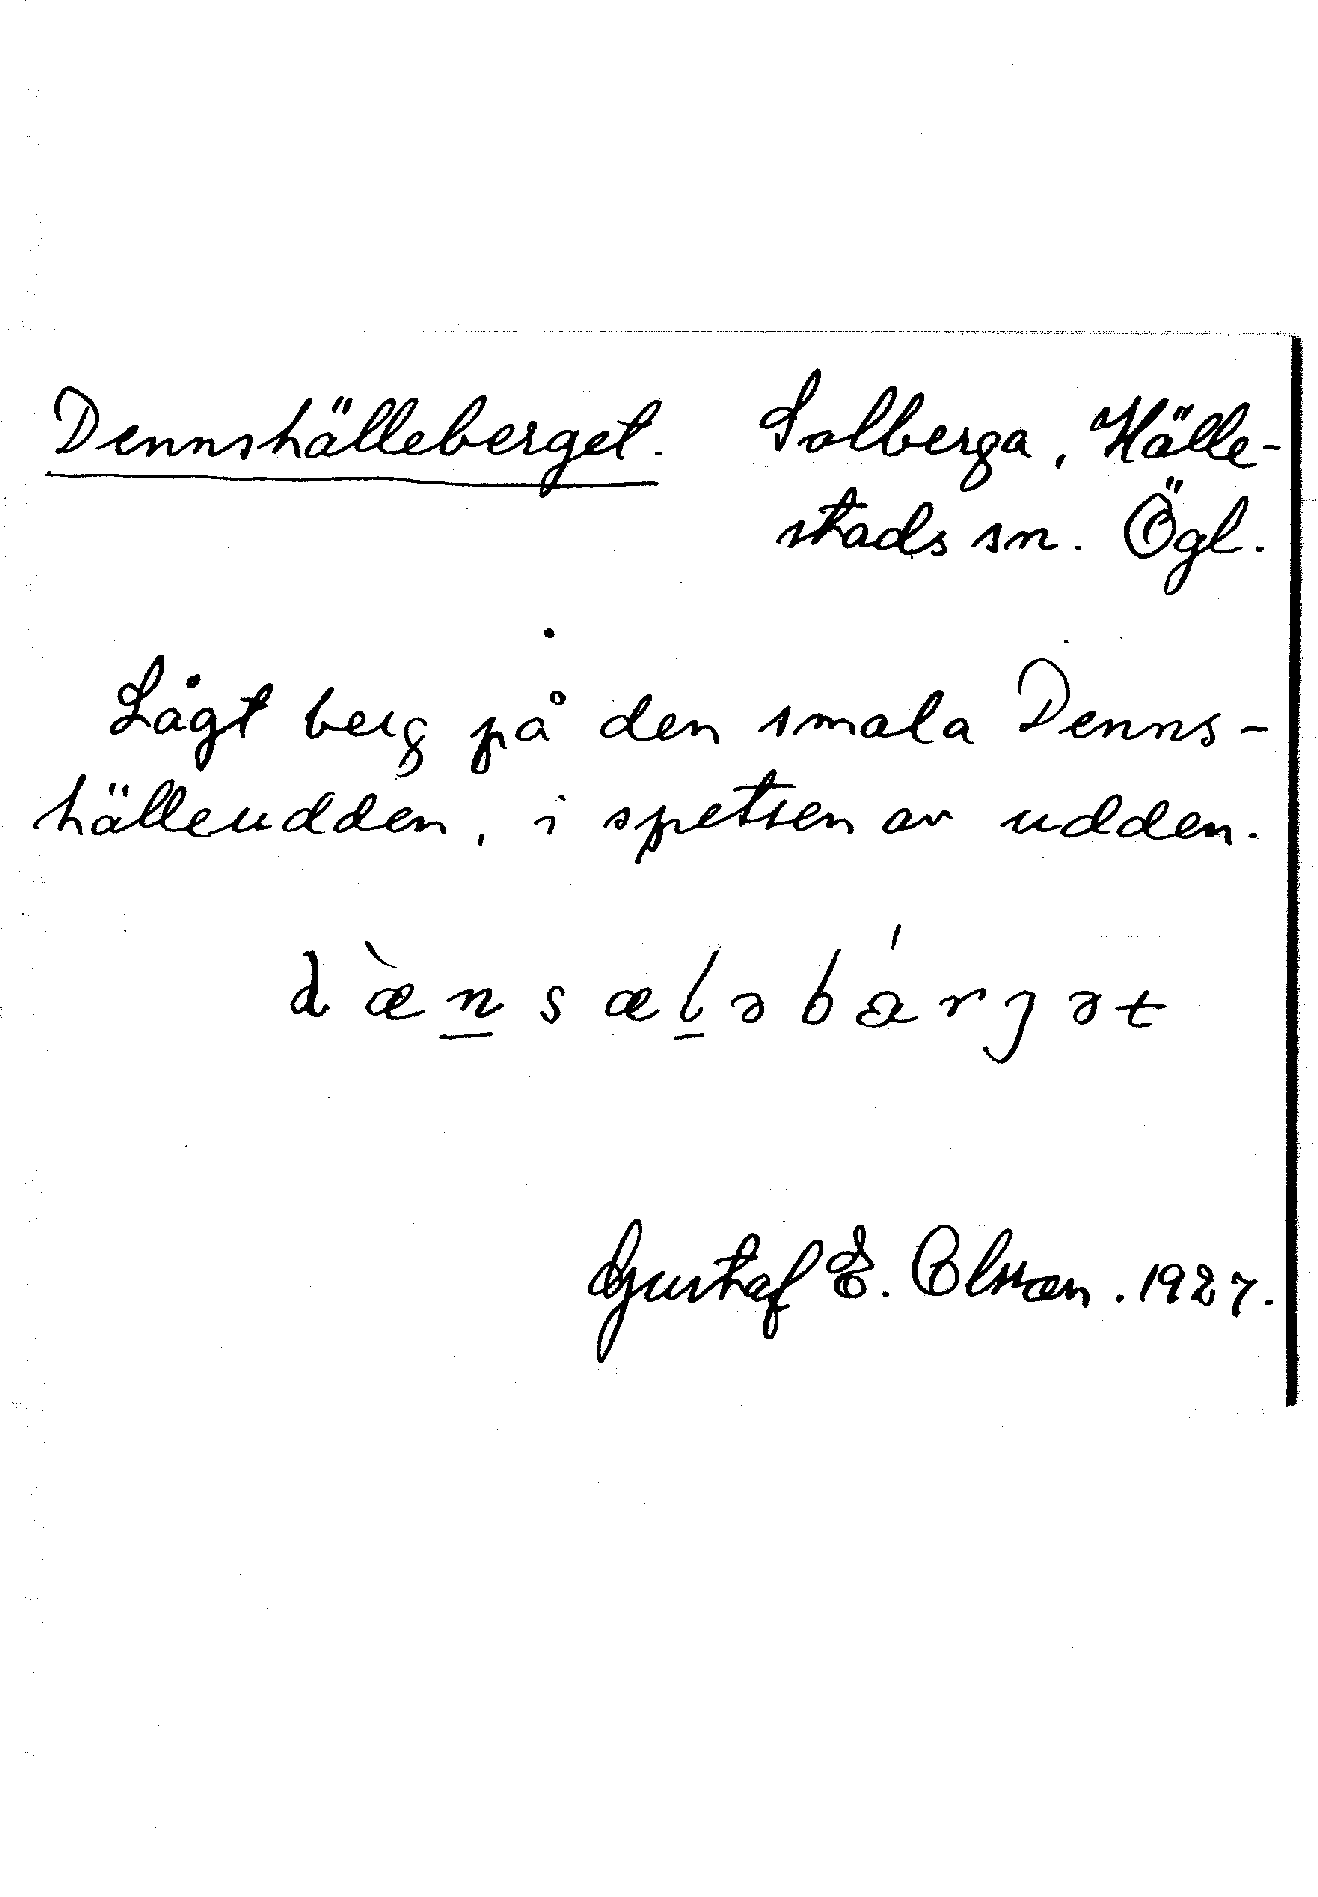 Dennshälleberget. Solberga, Hälle-
stads sn. Ögl.
Lågt berg på den smala Denns-
hälleudden, i spetsen av udden.
dæ̀n̲sæl̲əbárȷət
Gustaf E. Olsson. 1927.